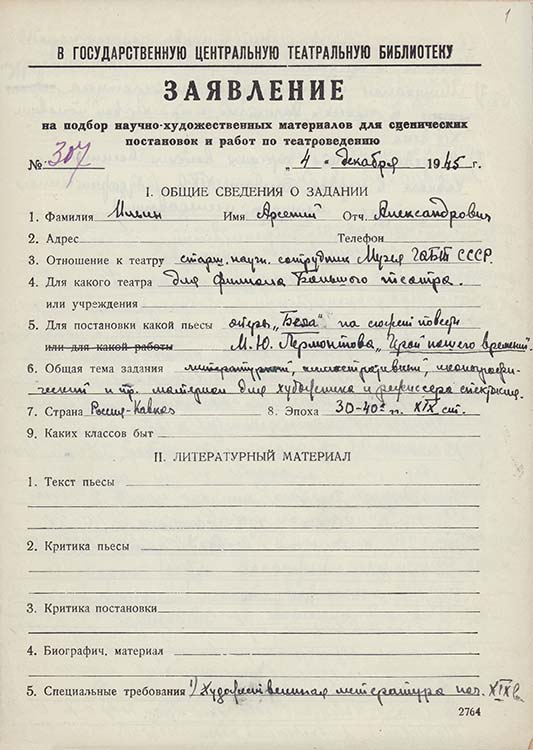 1
В ГОСУДАРСТВЕННУЮ ЦЕНТРАЛЬНУЮ ТЕАТРАЛЬНУЮ БИБЛИОТЕКУ
ЗАЯВЛЕНИЕ
на подбор научно-художественных материалов для сценических
постановок и работ по театроведению
№ 307 „4" декабря 1945 г.
I. ОБЩИЕ СВЕДЕНИЯ О ЗАДАНИИ
1. Фамилия Ильин Имя Арсений Отч. Александрович
2. Адрес Телефон
3. Отношение к театру старш. научн. сотрудник Музея ГАБТ СССР.
4. Для какого театра для филиала Большого театра.
или учреждения
5. Для постановки какой пьесы оперы „Бела" на сюжет повести
или для какой работы М. Ю. Лермонтова „Герой нашего времени".
6. Общая тема задания литературный, иллюстративный, иконографи-
ческий и пр. материал для художника и режиссера спектакля.
7. Страна Россия-Кавказ 8. Эпоха 30-40х г. XIX ст.
9. Каких классов быт
II. ЛИТЕРАТУРНЫЙ МАТЕРИАЛ
1. Текст пьесы
2. Критика пьесы
3. Критика постановки
4. Биографич. материал
5. Специальные требования 1) Художественная литература нач. XIX в.
2764